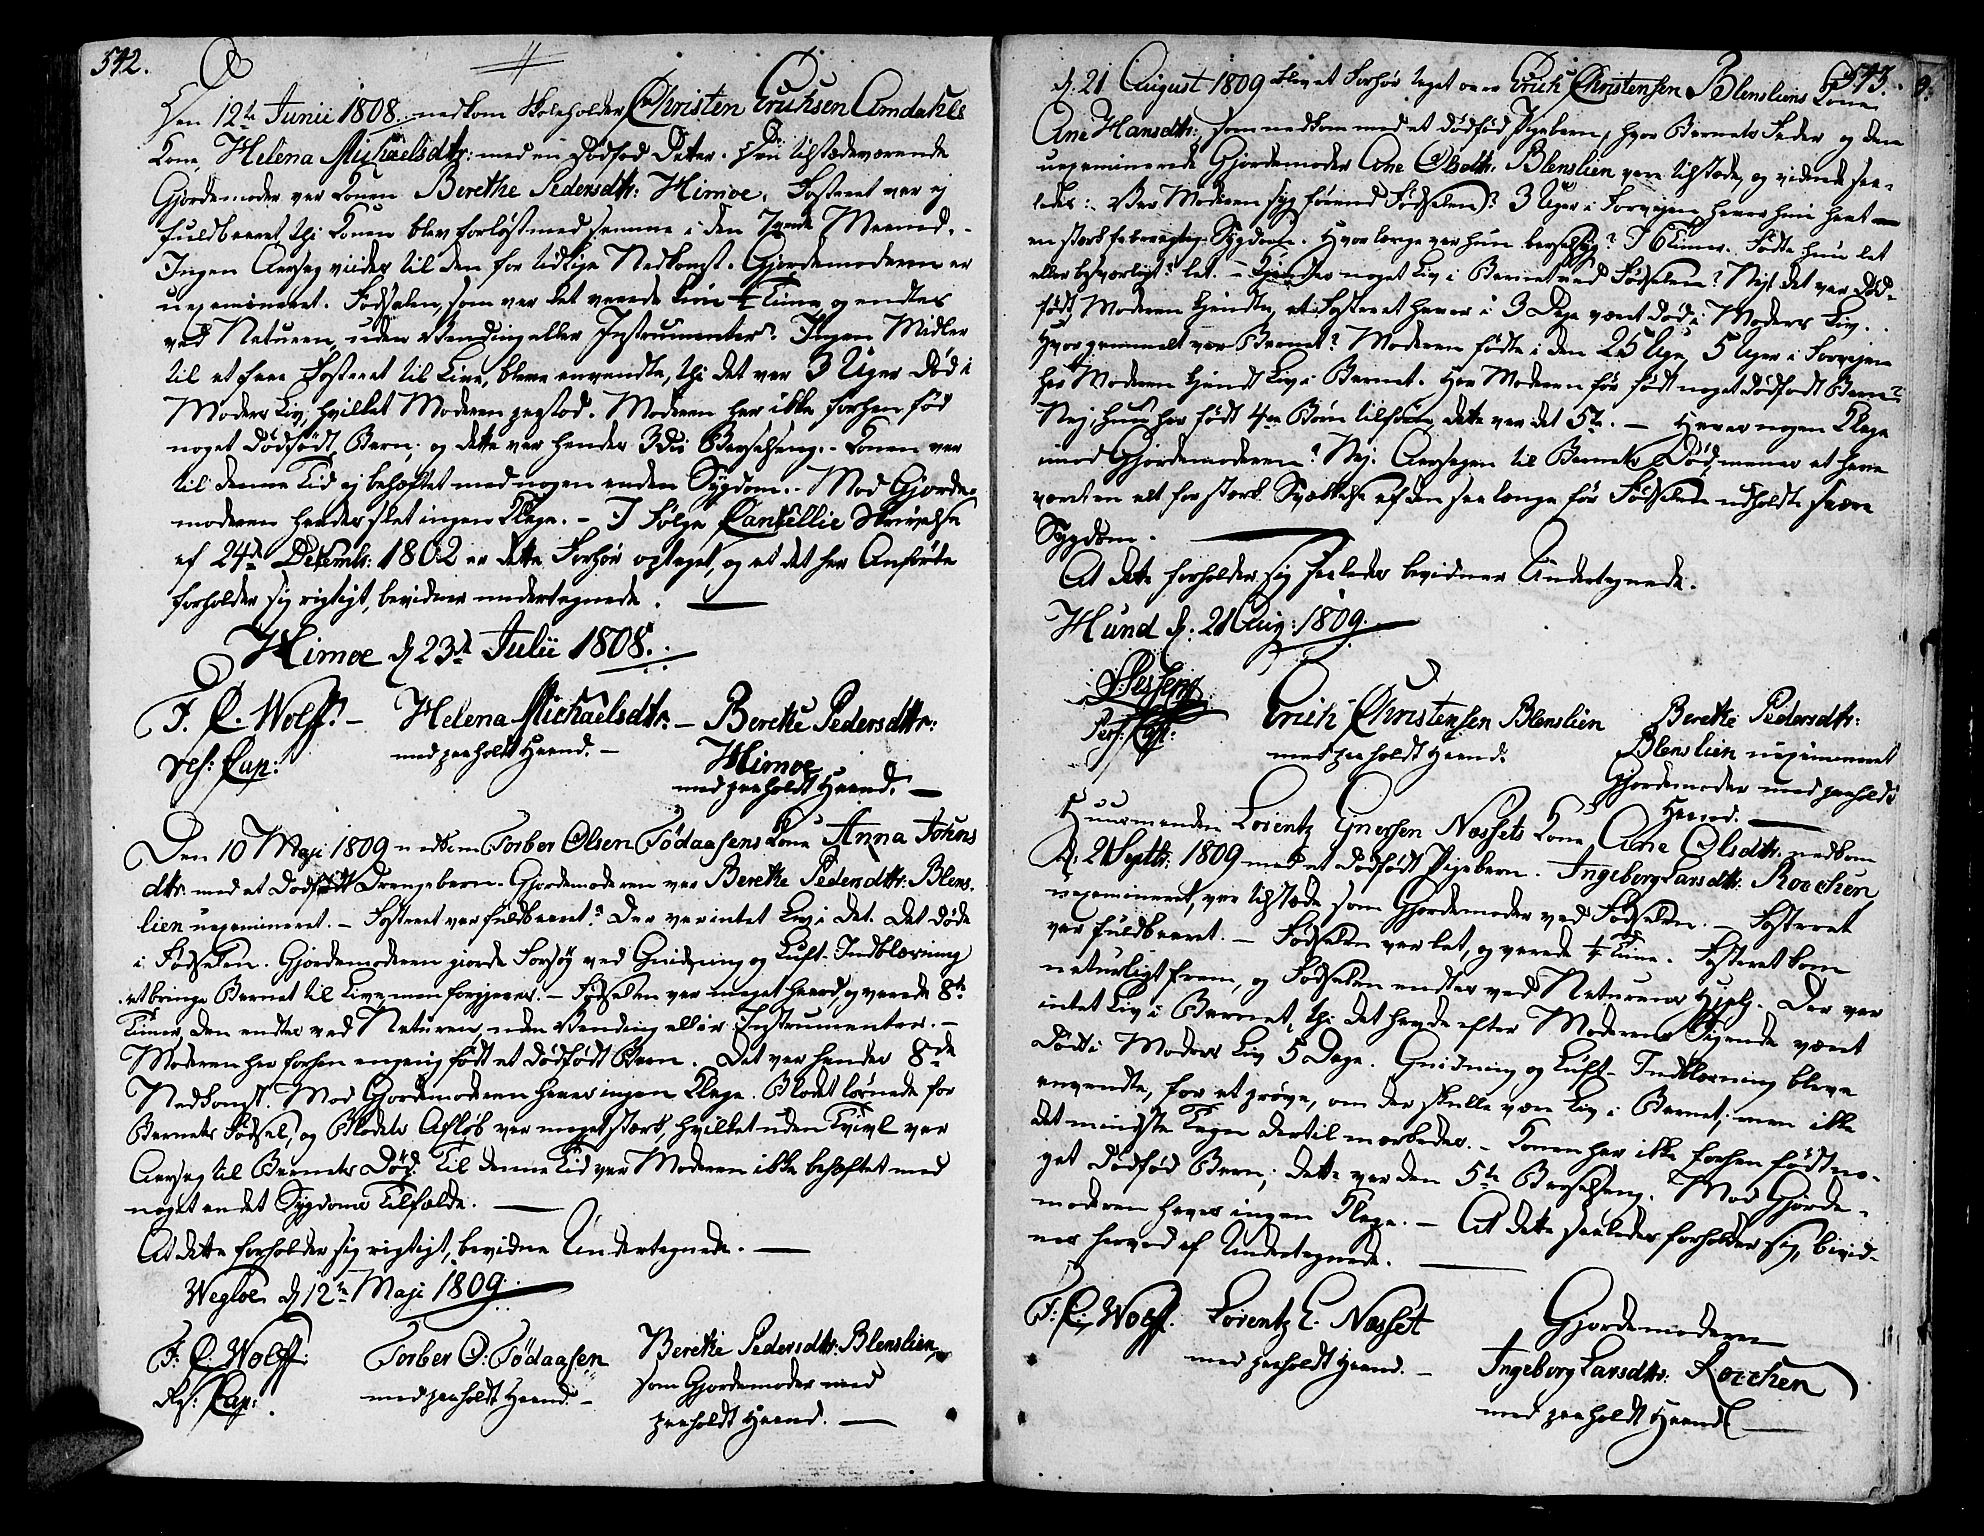 542.
Den 12te Junii 1808. nedkom Skoleholder Christen Erichsen Amdahls
Kone Helena Michaelsdtr: med en dødfød Datter. Den tilstædeværende
Gjordemoder var Konen Berethe Pedersdtr: Himoe. Fosteret var ej
fuldbaaret thi Konen blev forløst med samme i den 7nde Maaned. -
Ingen Aarsag viides til den for tidlige Nedkomst. Gjordemoderen er
uexamineret. Fødselen, som var let varede kun ¼ Time, og endtes
ved Naturen, uden Vending eller Instrumenter. Ingen Midler
til at faae Fosteret til Live, bleve anvendte, thi det var 3 Uger Død i
Moders Liv, hvilket Moderen paastod. Moderen har ikke forhen fød
noget dødfødt Barn, og dette var hendes 3die Barselseng. - Konen var
til denne Tid ej behæftet med nogen anden Sygdom. - Mod Gjorde-
moderen havdes slet ingen Klage. - I Følge Cancellie Skrivelse
af 24de Decembr: 1802 er dette Forhør optaget, og at det her Anførte
forholder sig rigtigt, bevidner undertegnede.
Himoe d 23de Julii 1808.
F. C. Wolff. - Helena Michaelsdtr. - Berethe Pedersdtr:
res: Cap: med paaholdt Haand. - Himoe
med paaholdt Haand. -
Den 10 Maji 1809 nedkom Torber Olsen Fødaasens Kone Anna Johns
dtr: med et dødfødt Drengebarn. Gjordemoderen var Berethe Pedersdtr: Blens-
lien uexamineret. - Fosteret var fuldbaaret? Der var intet Liv i det. Det døde
i Fødselen. Gjordemoderen giorde Forsøg ved Gnidning og Luft-Indblæsning
at bringe Barnet til Live, men forgjeves. - Fødselen var meget haard, og varede 8te
Timer, den endtes ved Naturen, uden Vending eller Instrumenter. -
Moderen har forhen engang født et dødfødt Barn. Det var hendes 8de
Nedkomst. Mod Gjordemoderen haves ingen Klage. Blodet lørnede for
Barnets Fødsel, og Blodets Afløb var meget stærk, hvilket uden Tvivl var
Aarsag til Barnets Død. Til denne Tid var Moderen ikke behæftet med
noget andet Sygdoms Tilfælde.
At dette forholder sig rigtigt, bevidne Undertegnede.
Wegloe d 12te Maji 1809.
F. C. Wolff: Torber O: Fødaasen Berethe Pedersdtr: Blenslien,
Res: Cap: med paaholdt Haand. - som Gjordemoder med
paaholdt Haand.
543.
d. 21 August 1809 blev et Forhør taget over Erich Christensen Blensliens Kone
Ane Hansdtr:, som nedkom med et dødfød Pigebarn, hvor Barnets Fader og den
uexaminerede Gjordemoder Ane Olsdtr: Blenslien vare tilstæde, og vidnede saa-
ledes: Var Moderen syg førend Fødselen? 3 Uger i Forvejen haver hun havt
en stærk Sygdom. Hvor længe var hun barselsyg? I 6 Timer. Fødte hun let
eller besværligt? let. - Kjendes noget Liv i Barnet ved Fødselen? Nej! det var død-
født, Moderen kjendte, at Fosteret haver i 3 Dage vært død i Moders Liv.
Hvor gammelt var Barnet? Moderen fødte i den 25 Uge, 5 Uger i Forvejen
har Moderen kjendt Liv i Barnet. Har Moderen før født noget dødfødt Barn?
Nej, hun har født 4re Børn tilforn, dette var det 5te. - Haves nogen Klage
imod Gjordemoderen? Nej. Aarsagen til Barnets Død menes at have
været en alt for stærk Svækkelse af den saa længe før Fødselen udholdte svære
Sygdom.
At dette forholder sig saaledes bevidner Undertegnede.
Hund d: 21 Aug: 1809.
Erich Christensen Blenslien Berethe Pedersdtr:
Pers: Cap: med paaholdt Haand. Blenslien uexamineret
Gjordemoder med paaholdt
Haand.
Huusmanden Lorentz Næssets Kone Ane Olsdtr: nedkom
d: 21 Septbr: 1809 med et dødfødt Pigebarn. Ingeborg Larsdtr: Rocchen
uexamineret, var tilstæde som Gjordemoder ved Fødselen. - Fosteret
var fuldbaaret. - Fødselen var let, og varede ¼ Time. Fosteret kom
naturligt frem, og Fødselen endtes ved Naturens Hjelp. Der var
intet Liv i Barnet, thi det havde efter Moderens Sigende vært
Død i Moders Liv 5 Dage. Gnidning og Luft-Indblæsning bleve
anvendte, for at prøve, om der skulle være Liv i Barnet; men ikke
det mindste Tegn dertil mærkedes. - Konen har ikke forhen født no-
get dødfød Barn; dette var den 5te Barselseng. Mod Gjorde-
moderen haves ingen Klage. - At dette saaledes forholder sig, bevid-
nes herved af Undertegnede.
F: C. Wolff. Lorentz E. Næsset Gjordemoderen
med paaholdt Haand. - Ingeborg Larsdtr: Rocchen
med paaholdt Haand.